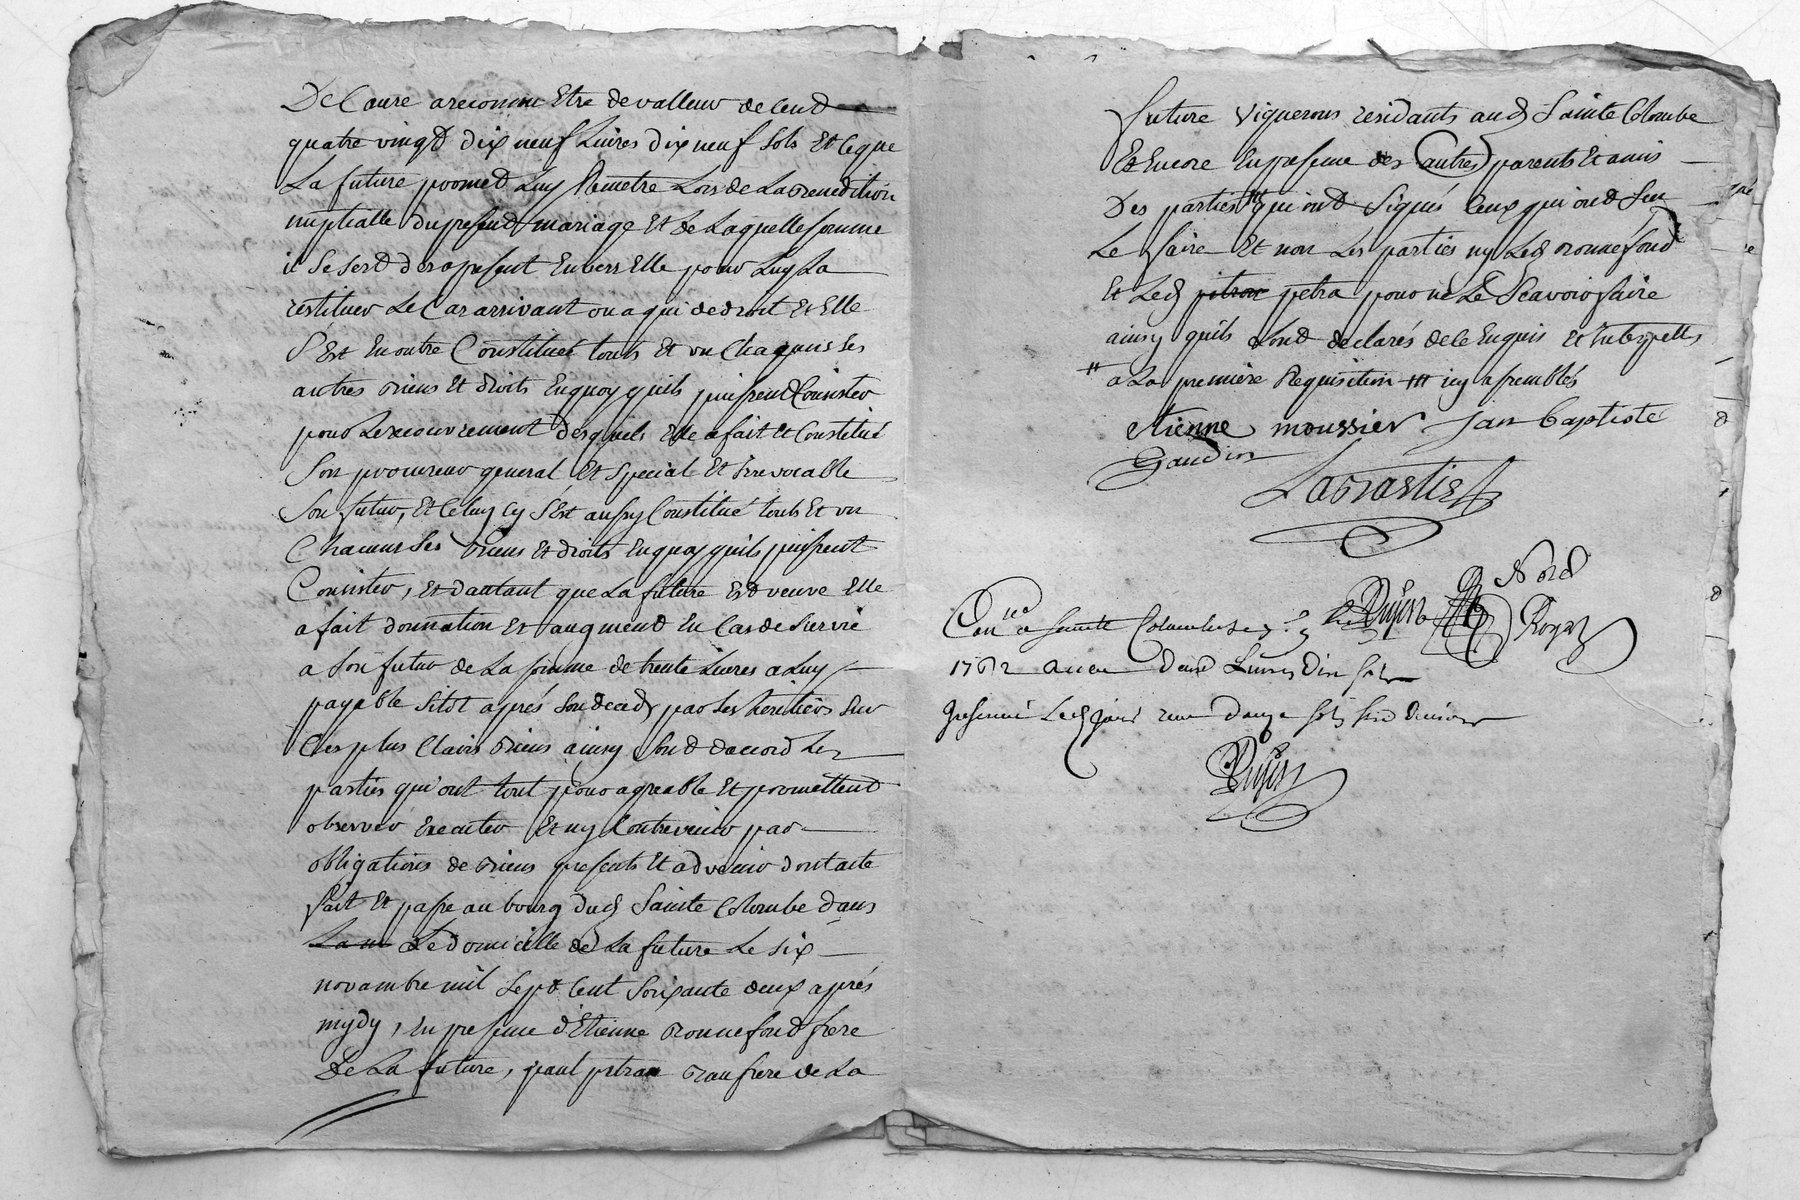 Declaré areconnu Etre devalleur decend
quatre vingt dix neuf Livres dix neuf Sols Et ceque
La future promet Luy Remetre Lors de La Benediction
nuptialle dupresend mariage Et de Laquelle somme
il Se send desapresent Envers Elle pour Luy La
restituer Le Cas arrivant ou a qui dedroit Et Elle
S'Est Enoutre Constituée touts Et un Chaquns ses
autres Biens Et droits Enquoy quils puissent Consister
pour Le recouvrement desquels Elle a fait Et Constitué
Son procureur general Et Special Et Irrevocable
Son futur, Et Celuy Cy S'Est aussy Constitué touts Et un
Chacuns Ses Biens Et droits Enquoy quils puissent
Consister, Et dautant que La future Est veuve Elle
a fait donnation Et augment En Cas de Survie
a Son futur de La Somme de trente Livres a Luy
payable Sitot aprés Sondeced par Ses heritiers Sur
Ses plus Clairs Biens ainsy Sont daccord Les
parties qu'ont tout pour agreable Et promettend
observer Executer Et ny Contrevenir par
obligations de Biens presents Et advenir dont acte
fait Et passé au bourg dud Sainte Colombe dans
Le domicille de La future Le Six
novambre mil Sept Cent Soixante deux aprés
mydy, En presence d'Etienne Bonnefond frere
De La future, paul petra Baufrere de La
future vignerons residants aud Sainte Colombe
Et Encore Enpresence des autres parents Et amis
Des parties qui ont Signés Ceux qui ont Seu
Le faire Et non Les parties ny Led Bonnefond
Et Led petra pour ne Le Scavoir faire
ainsy quils Lont declarés de ce Enquis Et Interpellés
a La premiere Requisition icy assemblés
Etienne moussier Jan baptiste
Gaudin
Labrastie
Nord
Con.lé a Sainte Colombe Le
Dupin Royal
1762 Receu deux Livres dix Sols
Dupin